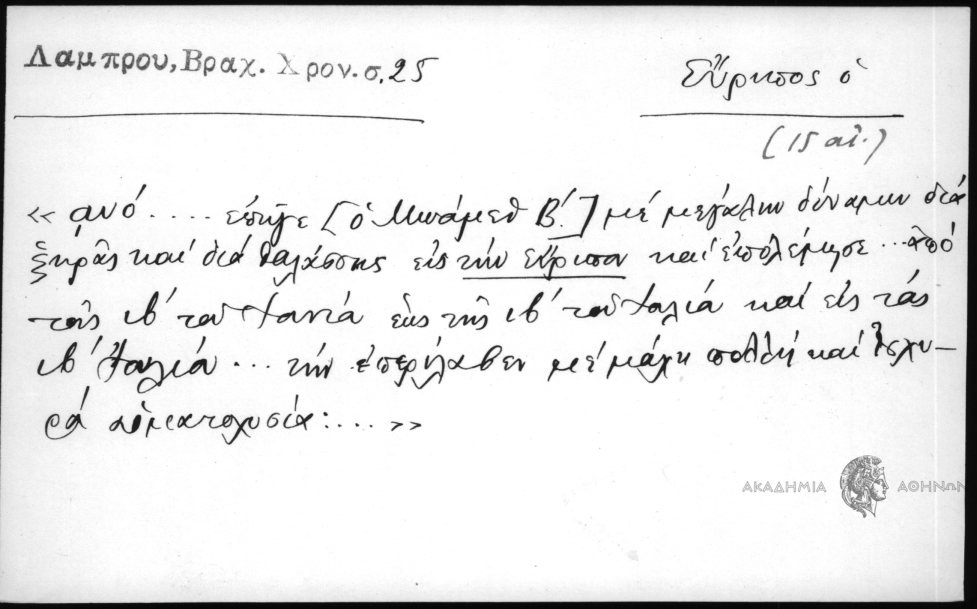 Λαμπρου, Βραχ. Χρον. σ. 25
Εὔριπος ὁ
(15 αἰ.)
«αυό .... ἐπῆγε [ὁ Μωάμεθ Β΄.] μέ μεγάλην δύναμιν διά
ξηρᾶς καί διά θαλάσσης εἰς τήν Εὔριπον καί ἐπολέμησε ... ἀπό
τάς ιβ΄ τοῦ ἕως τῆς ιβ΄ τοῦ καί εἰς τάς
ιβ΄ ... τήν ἐπερίλαβεν μέ μάχη πολλή καί
αἱματοχυσία: .... »
ΑΚΑΔΗΜΙΑ ΑΘΗΝΩΝ